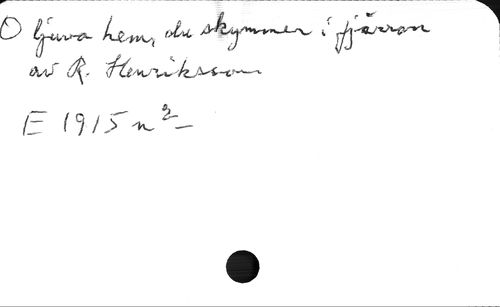 O ljuva hem, du skymmer i fjärran
av R. Henriksson
E 1915 n²-